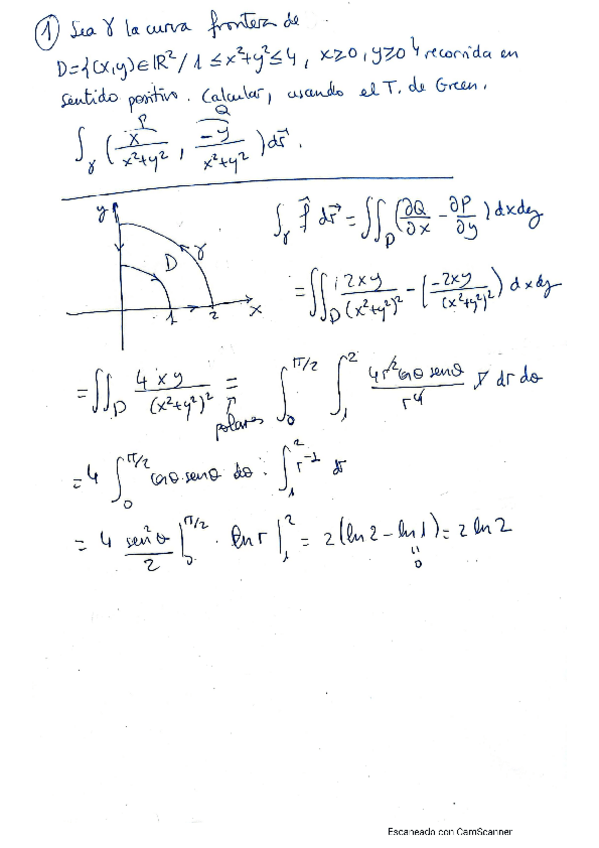 ① Sea γ la curva frontera de
D={(x,y)∈IR²/ 1≤x²+y²≤4, x≥0, y≥0} recorrida en
sentido positivo. Calcular, usando el T. de Green,
P Q
∫_γ (x/(x²+y²), -y/(x²+y²)) dr⃗.
y γ D 1 2 x
∫_γ f⃗ dr⃗ = ∬_D (∂Q/∂x - ∂P/∂y) dxdy
= ∬_D 2xy/(x²+y²)² - (-2xy/(x²+y²)²) dxdy
= ∬_D 4xy/(x²+y²)² = ∫_0^{π/2} ∫_1^2 4r²cosθ senθ/r⁴ r dr dθ
↑
polares
= 4 ∫_0^{π/2} cosθ.senθ dθ . ∫_1^2 r⁻¹ dr
= 4 sen²θ/2 |_0^{π/2} . ln r |_1^2 = 2(ln2 - ln1) = 2 ln 2
"
0
Escaneado con CamScanner